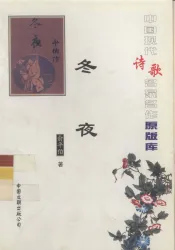 中国现代
诗歌
名家名作
原版库
冬夜
俞平伯
著
冬夜
中国文联出版公司